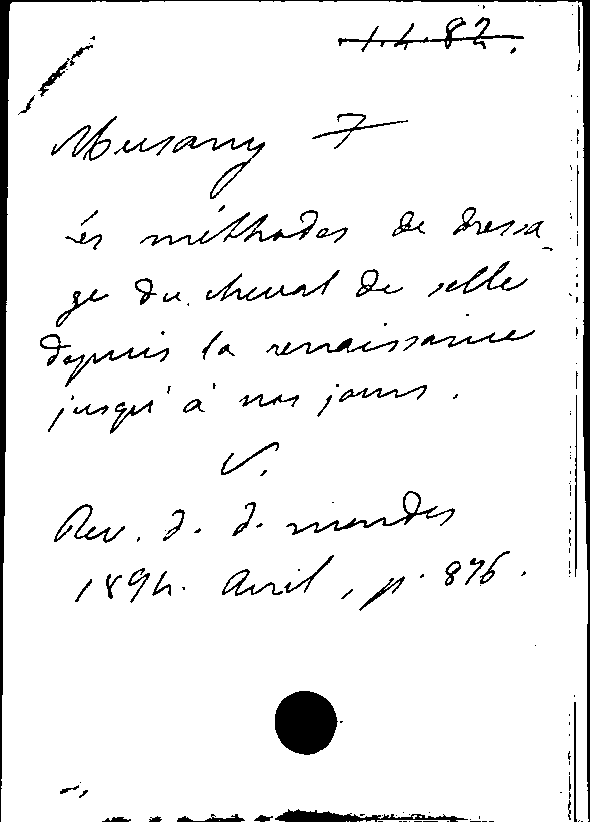 1.4.82.
Musany F
Les méthodes de dressa-
ge du cheval de selle
depuis la renaissance
jusqu'à nos jours.
V.
Rev. d. d. mondes
1894. Avril, p. 876.